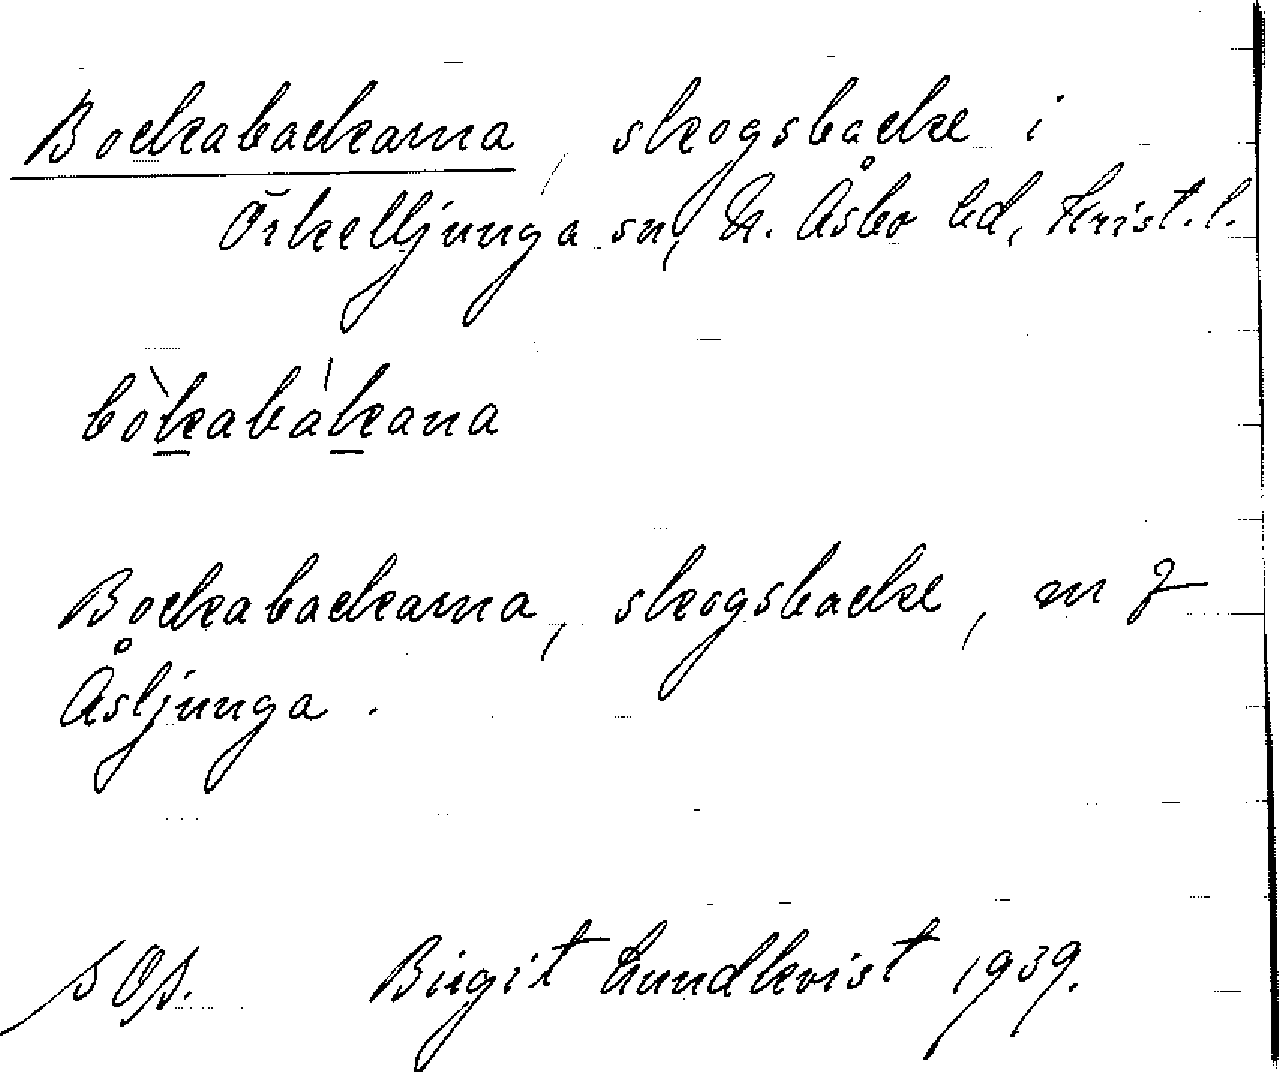 Bockabackarna, skogsbacke i
Örkelljunga sn, N. Åsbo hd, Krist. l.
bòkabákana
Bockabackarna, skogsbacke, m
Åsljunga.
Birgit Lundkvist 1939.